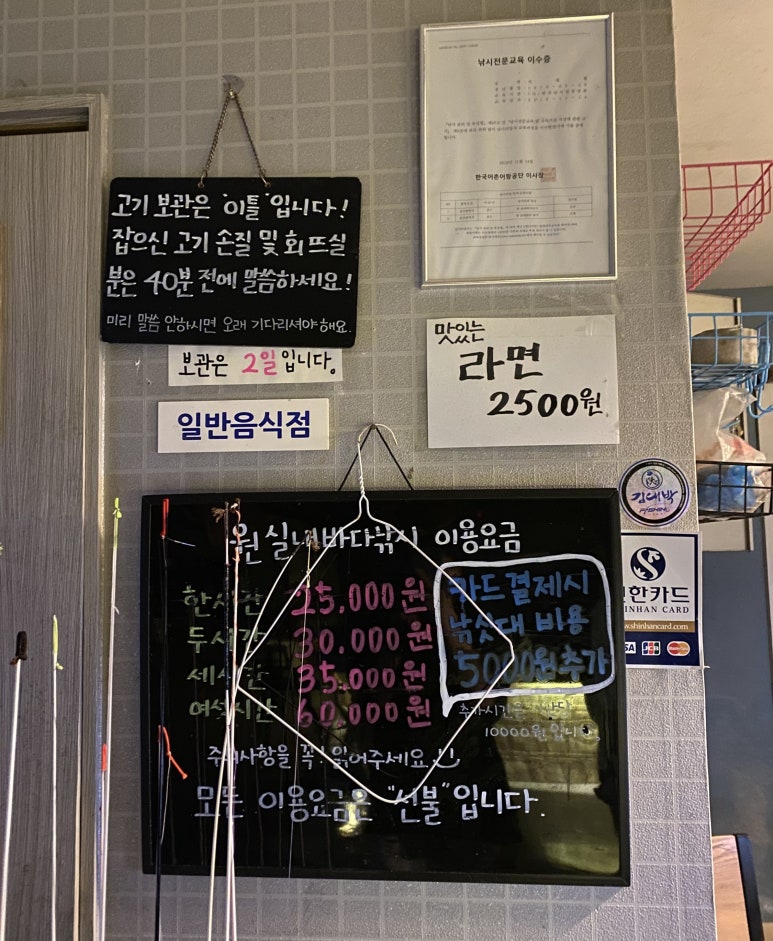 고기 보관은 "이틀"입니다!
잡으신 고기 손질 및 회뜨실
분은 40분 전에 말씀하세요!
미리 말씀 안하시면 오래 기다리셔야해요.
보관은 2일입니다.
일반음식점
낚시전문교육 이수증
한국어촌어항공단 이사장
맛있는
라면
2500원
김대박
실내바다낚시 이용요금
한시간 25.000원
두시간 30.000원
세시간 35.000원
여섯시간 60.000원
카드결제시
낚싯대 비용
5000원추가
추가시간은
10000원입니다.
주의사항을 꼭! 읽어주세요
모든 이용요금은 "선불"입니다.
신한카드
SHINHAN CARD
www.shinhancard.com
VISA JCB MasterCard